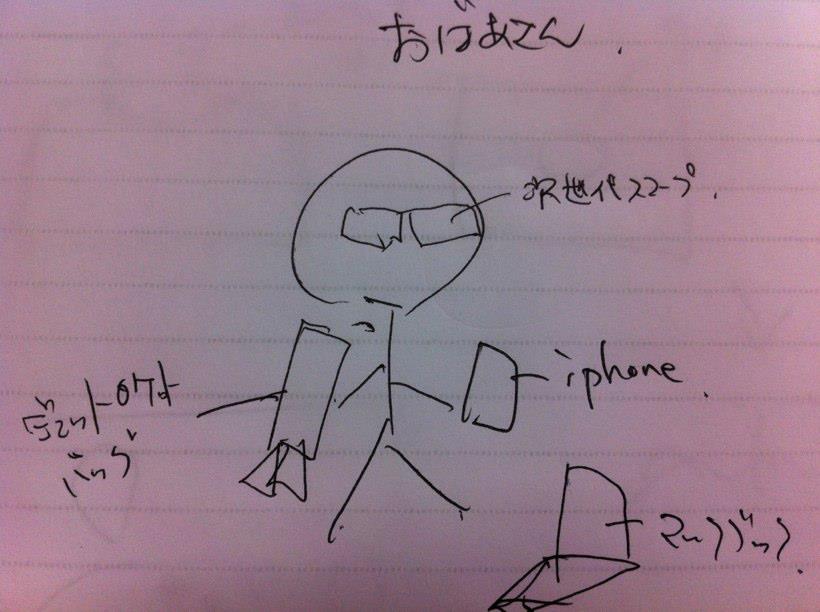 おばあさん.
次世代スコープ.
iphone.
ジェットロケット
バッグ
マックブック.